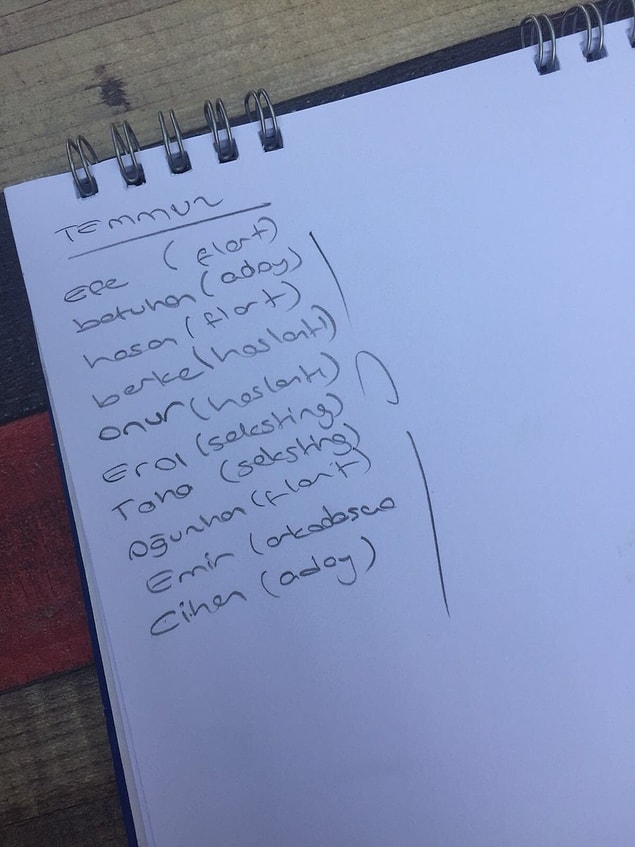 TEMMUZ
Efe (flört)
batuhan (aday)
hasan (flört)
berke (hoslantı)
onur (hoslantı)
Erol (seksting)
Taha (seksting)
Oğunhan (flört)
Emir (arkadasca
Cihan (aday)